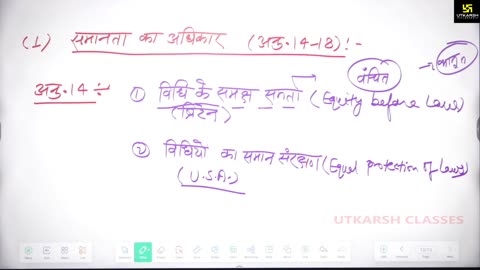 UTKARSH CLASSES
(1) समानता का अधिकार (अनु.14-18) :-
वंचित → कानून
अनु.14 ÷ ① विधि के समक्ष समता (Equity before Law)
(ब्रिटेन)
② विधियो का समान संरक्षण (Equal protection of Laws)
(U.S.A.)
UTKARSH CLASSES